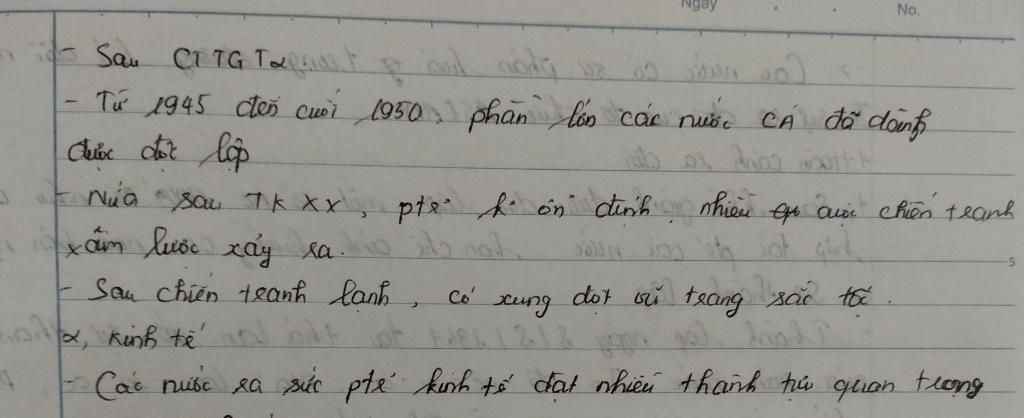 Ngày No.
- Sau CTTGT2.
- Từ 1945 đến cuối 1950, phần lớn các nước CÁ đã dành
được độc lập
- Nửa sau TK XX, ptr k ổn định, nhiều cuộc chiến tranh
xâm lược xảy ra.
- Sau chiến tranh lạnh, có xung đột vũ trang sắc tộc.
2, Kinh tế
- Các nước ra sức ptr kinh tế đạt nhiều thành tựu quan trọng